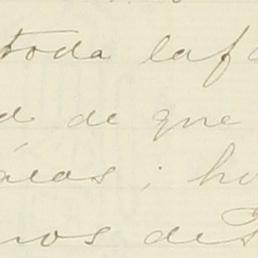 toda la fa
d de que
áeas; ho
nos de S